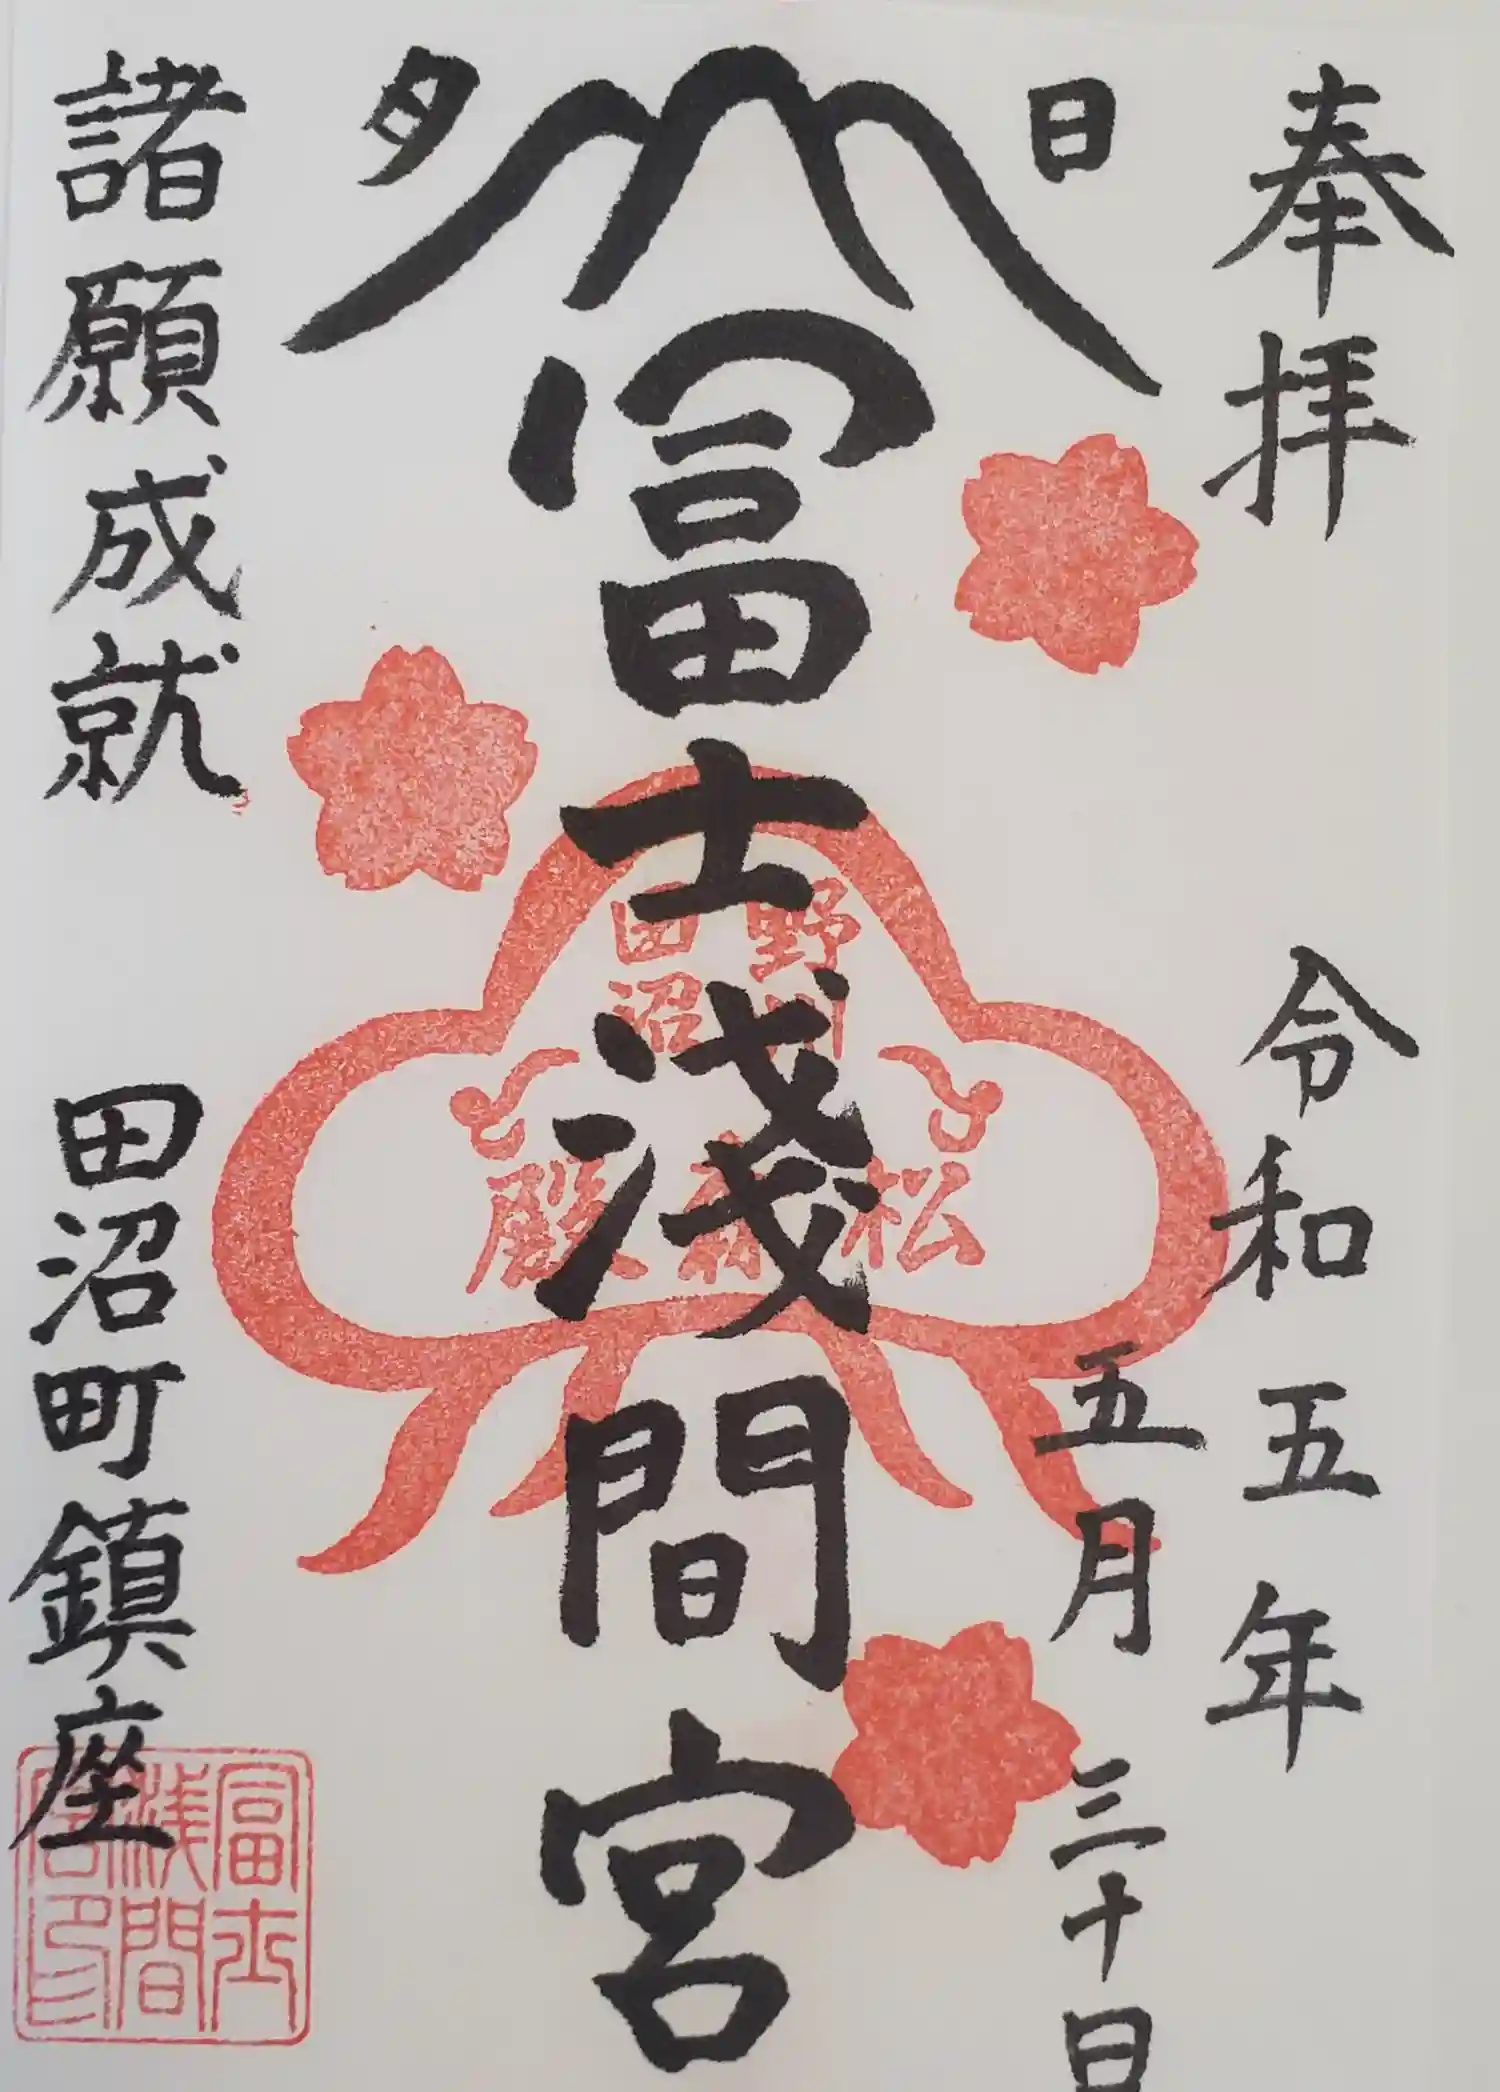 奉拝
令和五年
五月三十日
日
月
冨士浅間宮
野州
田沼
松森殿
諸願成就
田沼町鎮座
冨士
浅間
宮印